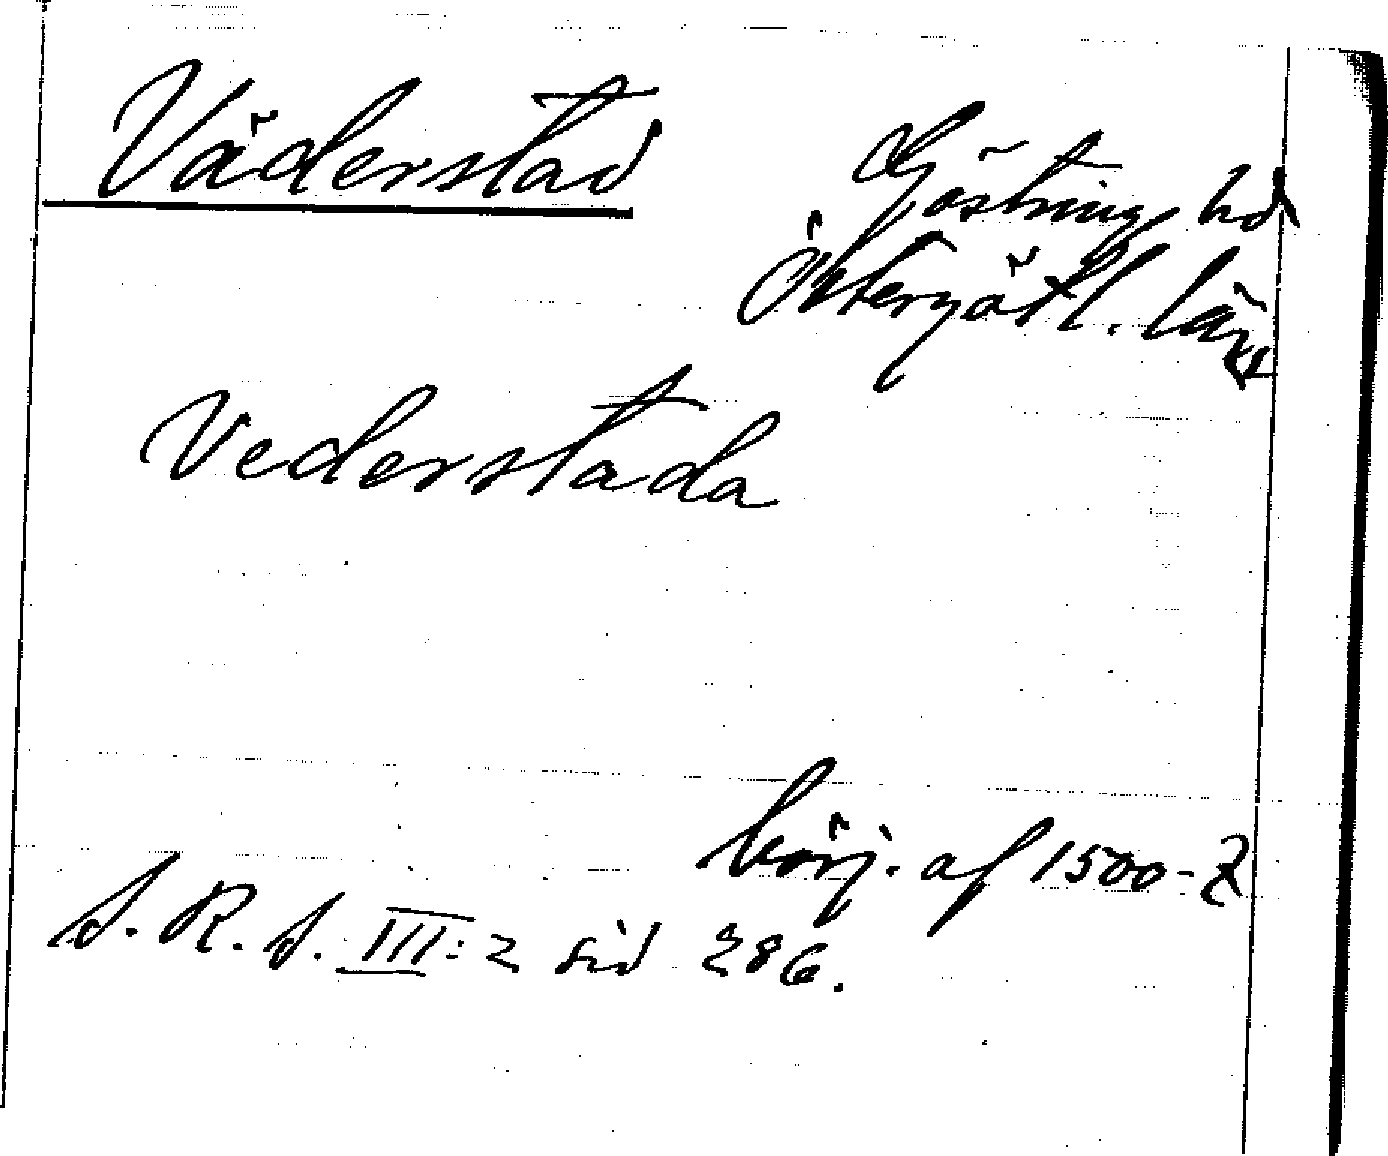 Väderstad
Göstring hd
Östergötl. län
Vederstada
börj. af 1500-t
S. R. S. III: 2 sid 286.